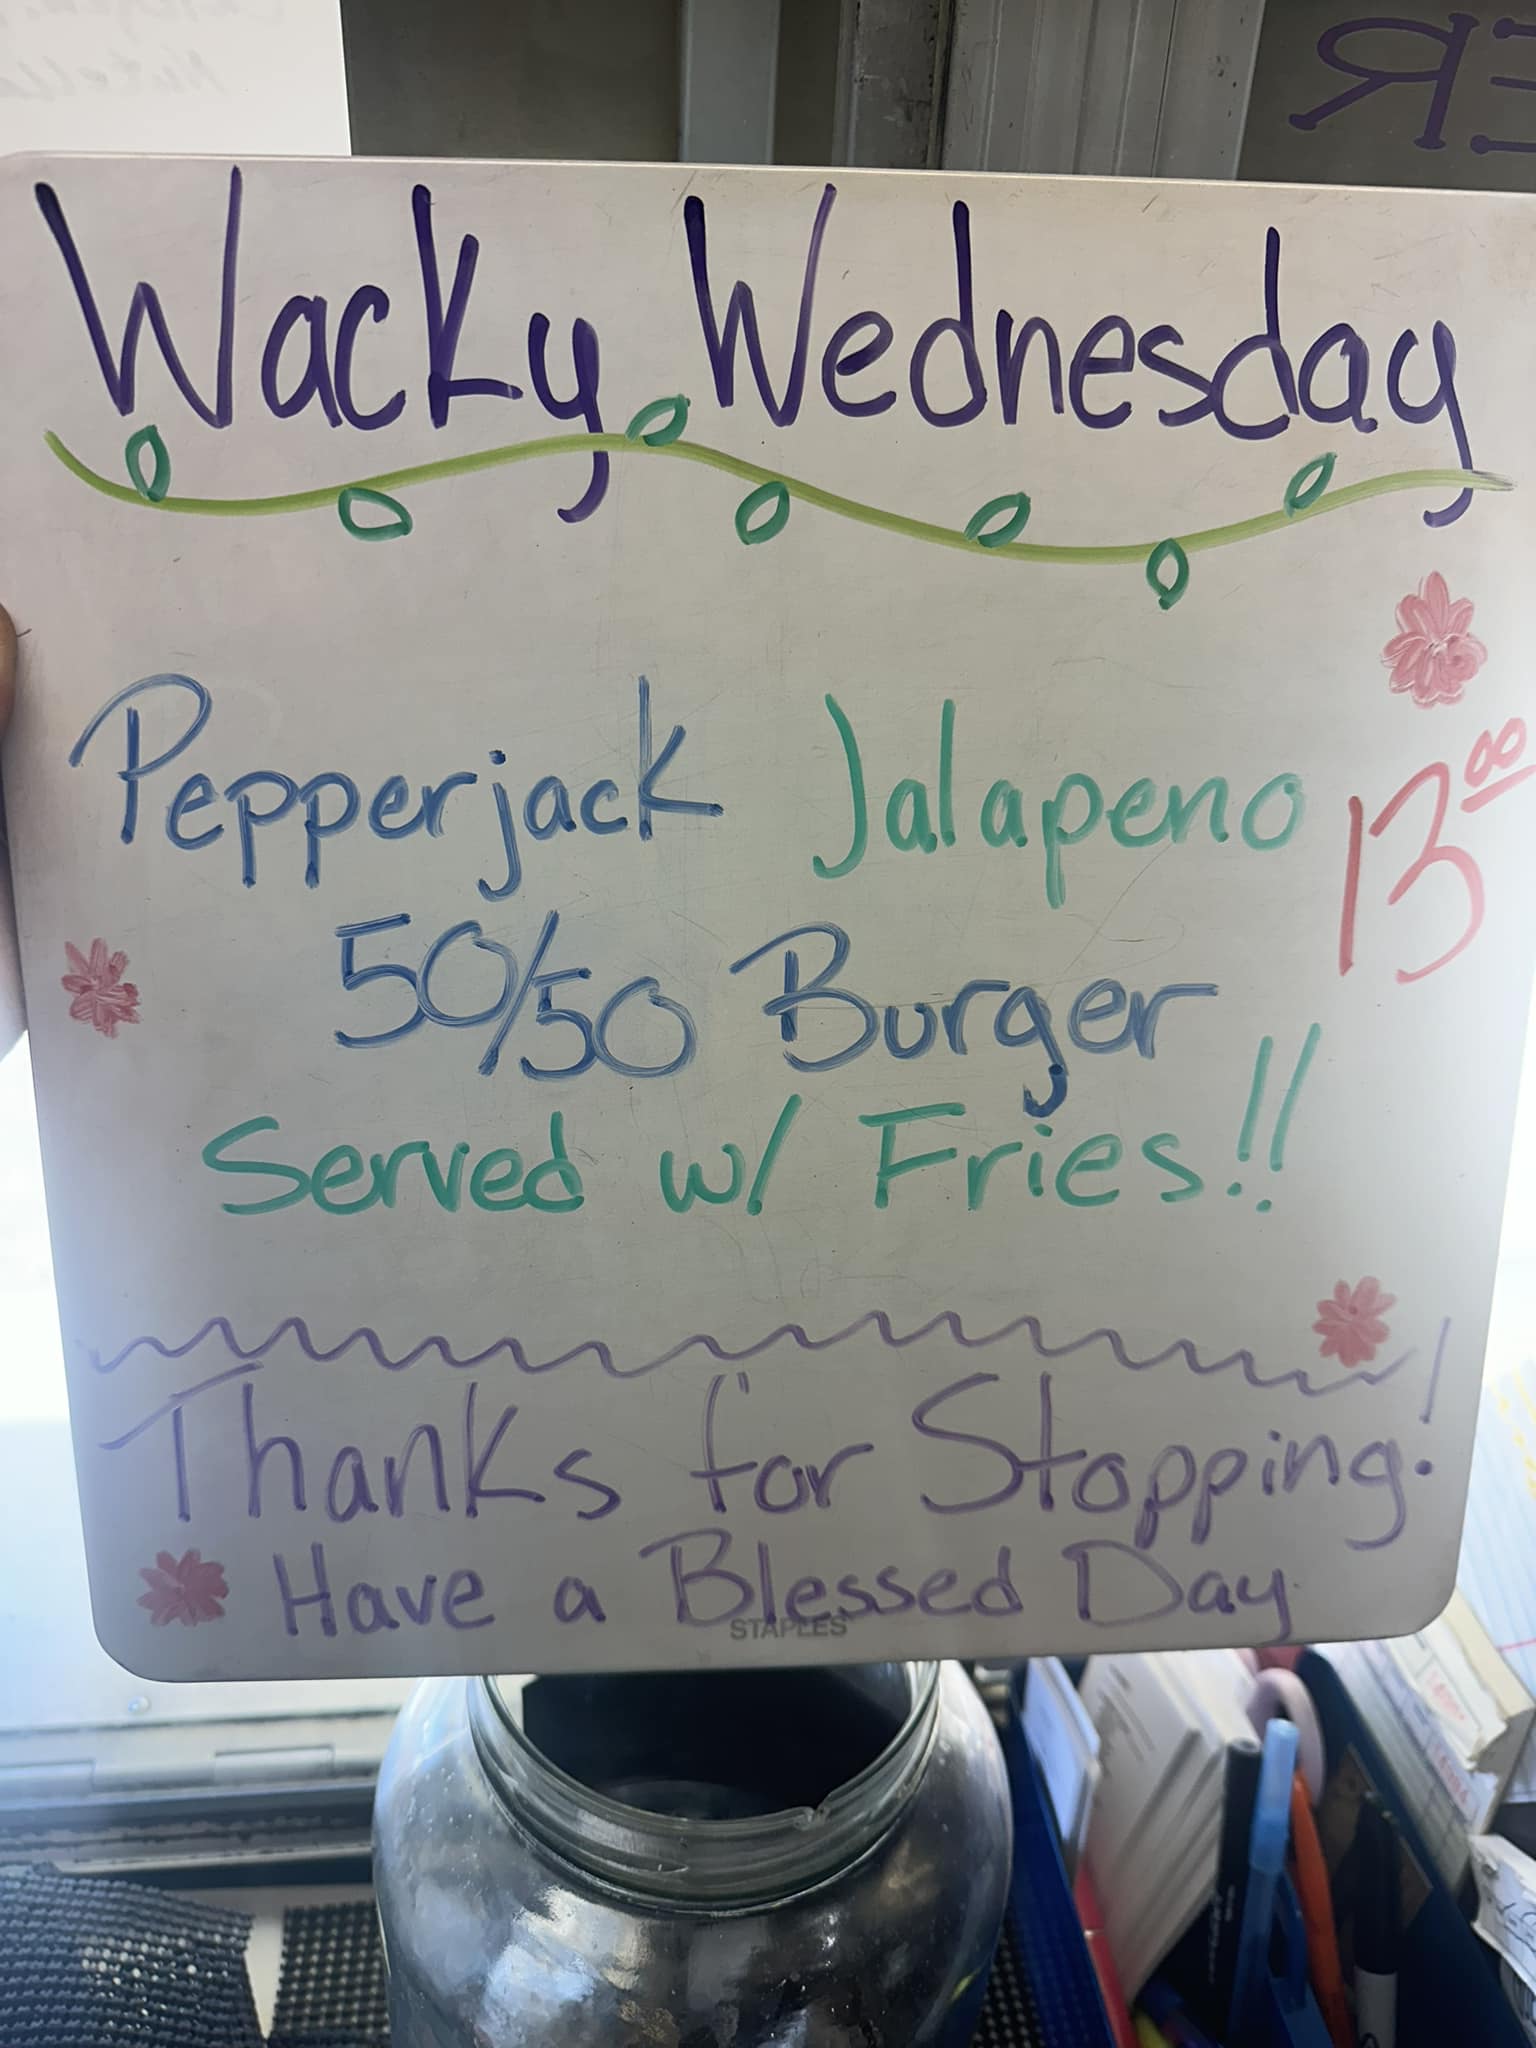 Wacky Wednesday
Pepperjack Jalapeno 13⁰⁰
50/50 Burger
Served w/ Fries!!
Thanks for Stopping!
Have a Blessed Day
STAPLES